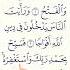 وَالْفَتْحُ ۝ وَرَأَيْتَ
النَّاسَ يَدْخُلُونَ فِي دِينِ
اللَّهِ أَفْوَاجًا ۝ فَسَبِّحْ
بِحَمْدِ رَبِّكَ وَاسْتَغْفِرْهُ